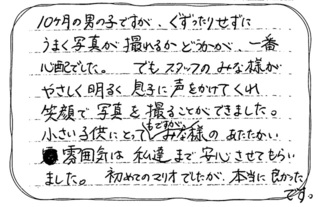 10ヶ月の男の子ですが、ぐずったりせずに
うまく写真が撮れるかどうかが、一番
心配でした。 でもスタッフのみな様が
やさしく明るく息子に声をかけてくれ
笑顔で写真を撮ることができました。
小さい子供にとってもですが、みな様のあたたかい
雰囲気は私達まで安心させてもらい
ました。 初めてのマリオでしたが、本当に良かった
です。